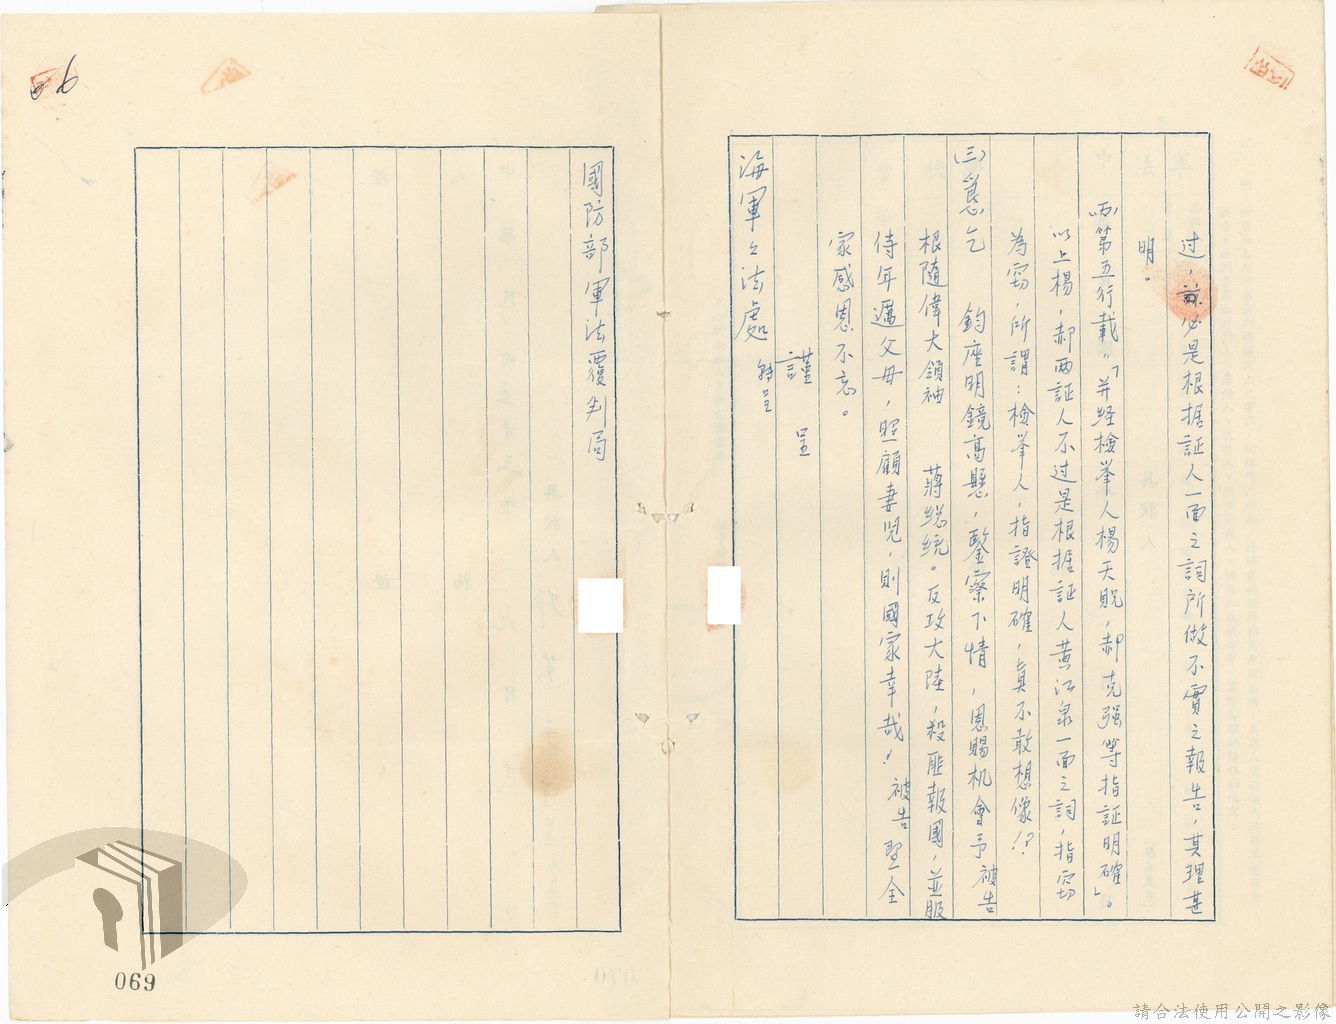 过，亦必是根据証人一面之詞所做不實之報告，其理甚
明。
(丙)第五行載"「并経檢举人楊天貺，郝克强等指証明確」。
以上楊，郝两証人不过是根据証人黄江泉一面之詞，指窃
為窃，所謂：檢举人，指證明確，真不敢想像！？
(三)懇乞 鈞座明鏡高懸，鑒察下情，恩賜机會予被告
根隨偉大領袖 蔣総統。反攻大陸，殺匪報國，並服
侍年邁父母，照顧妻児，則國家幸哉！被告 聖全
家感恩不忘。
謹 呈
海軍々法處 轉呈
國防部軍法覆判局
069
請合法使用公開之影像